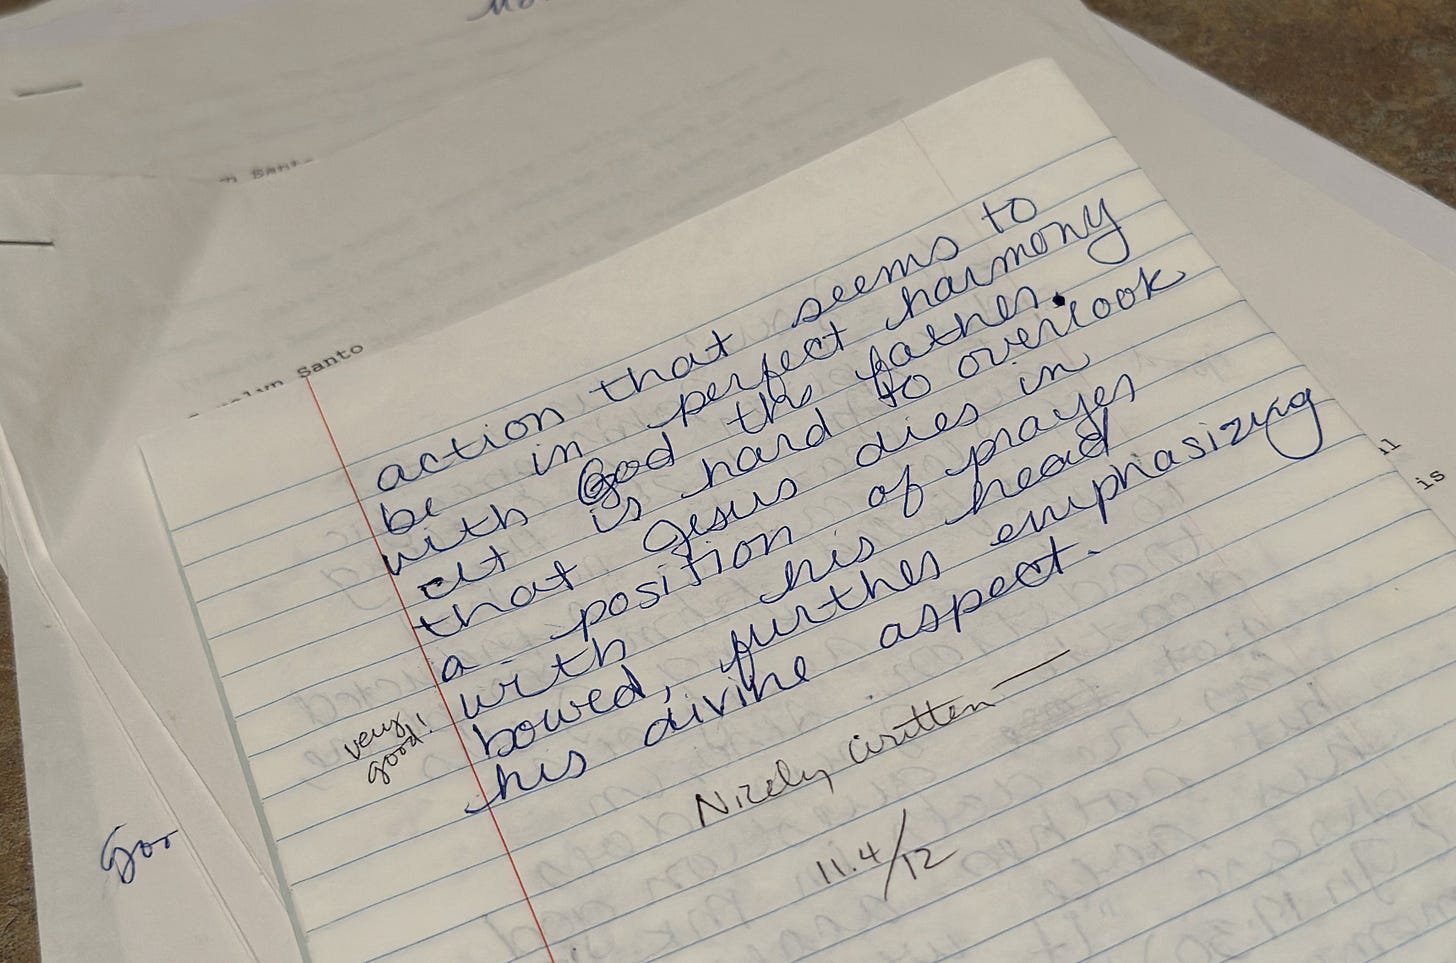 Santo
action that seems to
be in perfect harmony
with God the father.
It is hard to overlook
that Jesus dies in
a position of prayer
with his head
bowed, further emphasizing
his divine aspect.
very
good!
Nicely written —
11.4/12
is